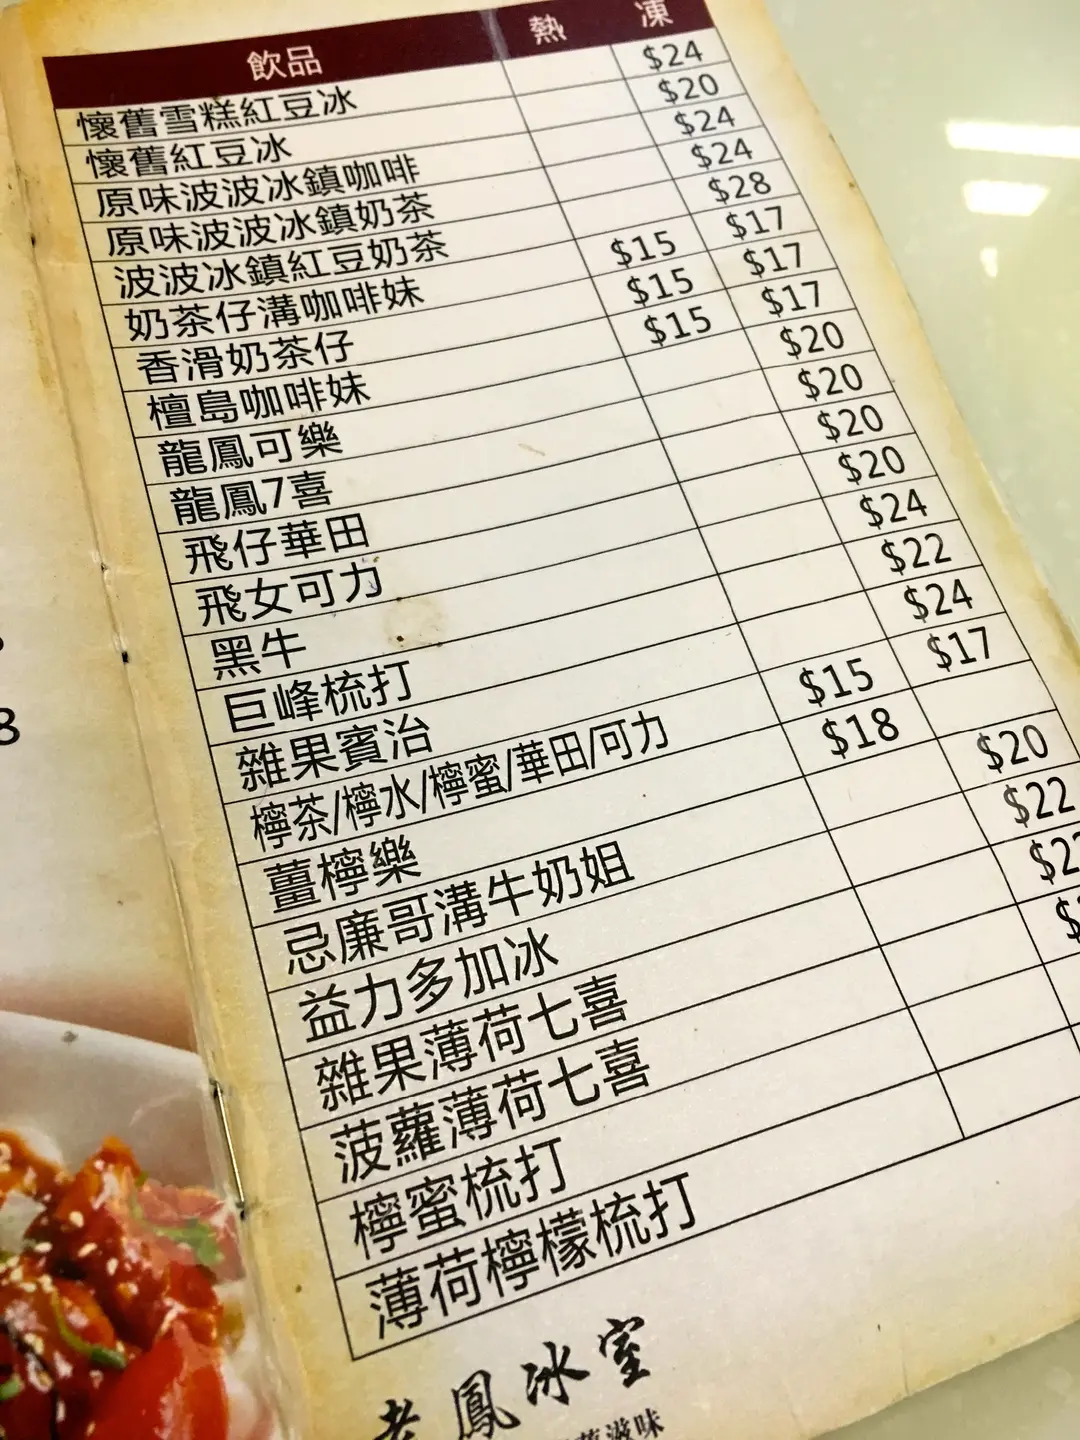 飲品 熱 凍
懷舊雪糕紅豆冰 $24
懷舊紅豆冰 $20
原味波波冰鎮咖啡 $24
原味波波冰鎮奶茶 $24
波波冰鎮紅豆奶茶 $28
奶茶仔溝咖啡妹 $15 $17
香滑奶茶仔 $15 $17
檀島咖啡妹 $15 $17
龍鳳可樂 $20
龍鳳7喜 $20
飛仔華田 $20
飛女可力 $20
黑牛 $24
巨峰梳打 $22
雜果賓治 $24
檸茶/檸水/檸蜜/華田/可力 $15 $17
薑檸樂 $18
忌廉哥溝牛奶姐 $20
益力多加冰 $22
雜果薄荷七喜
菠蘿薄荷七喜
檸蜜梳打
薄荷檸檬梳打
老鳳冰室
滋味